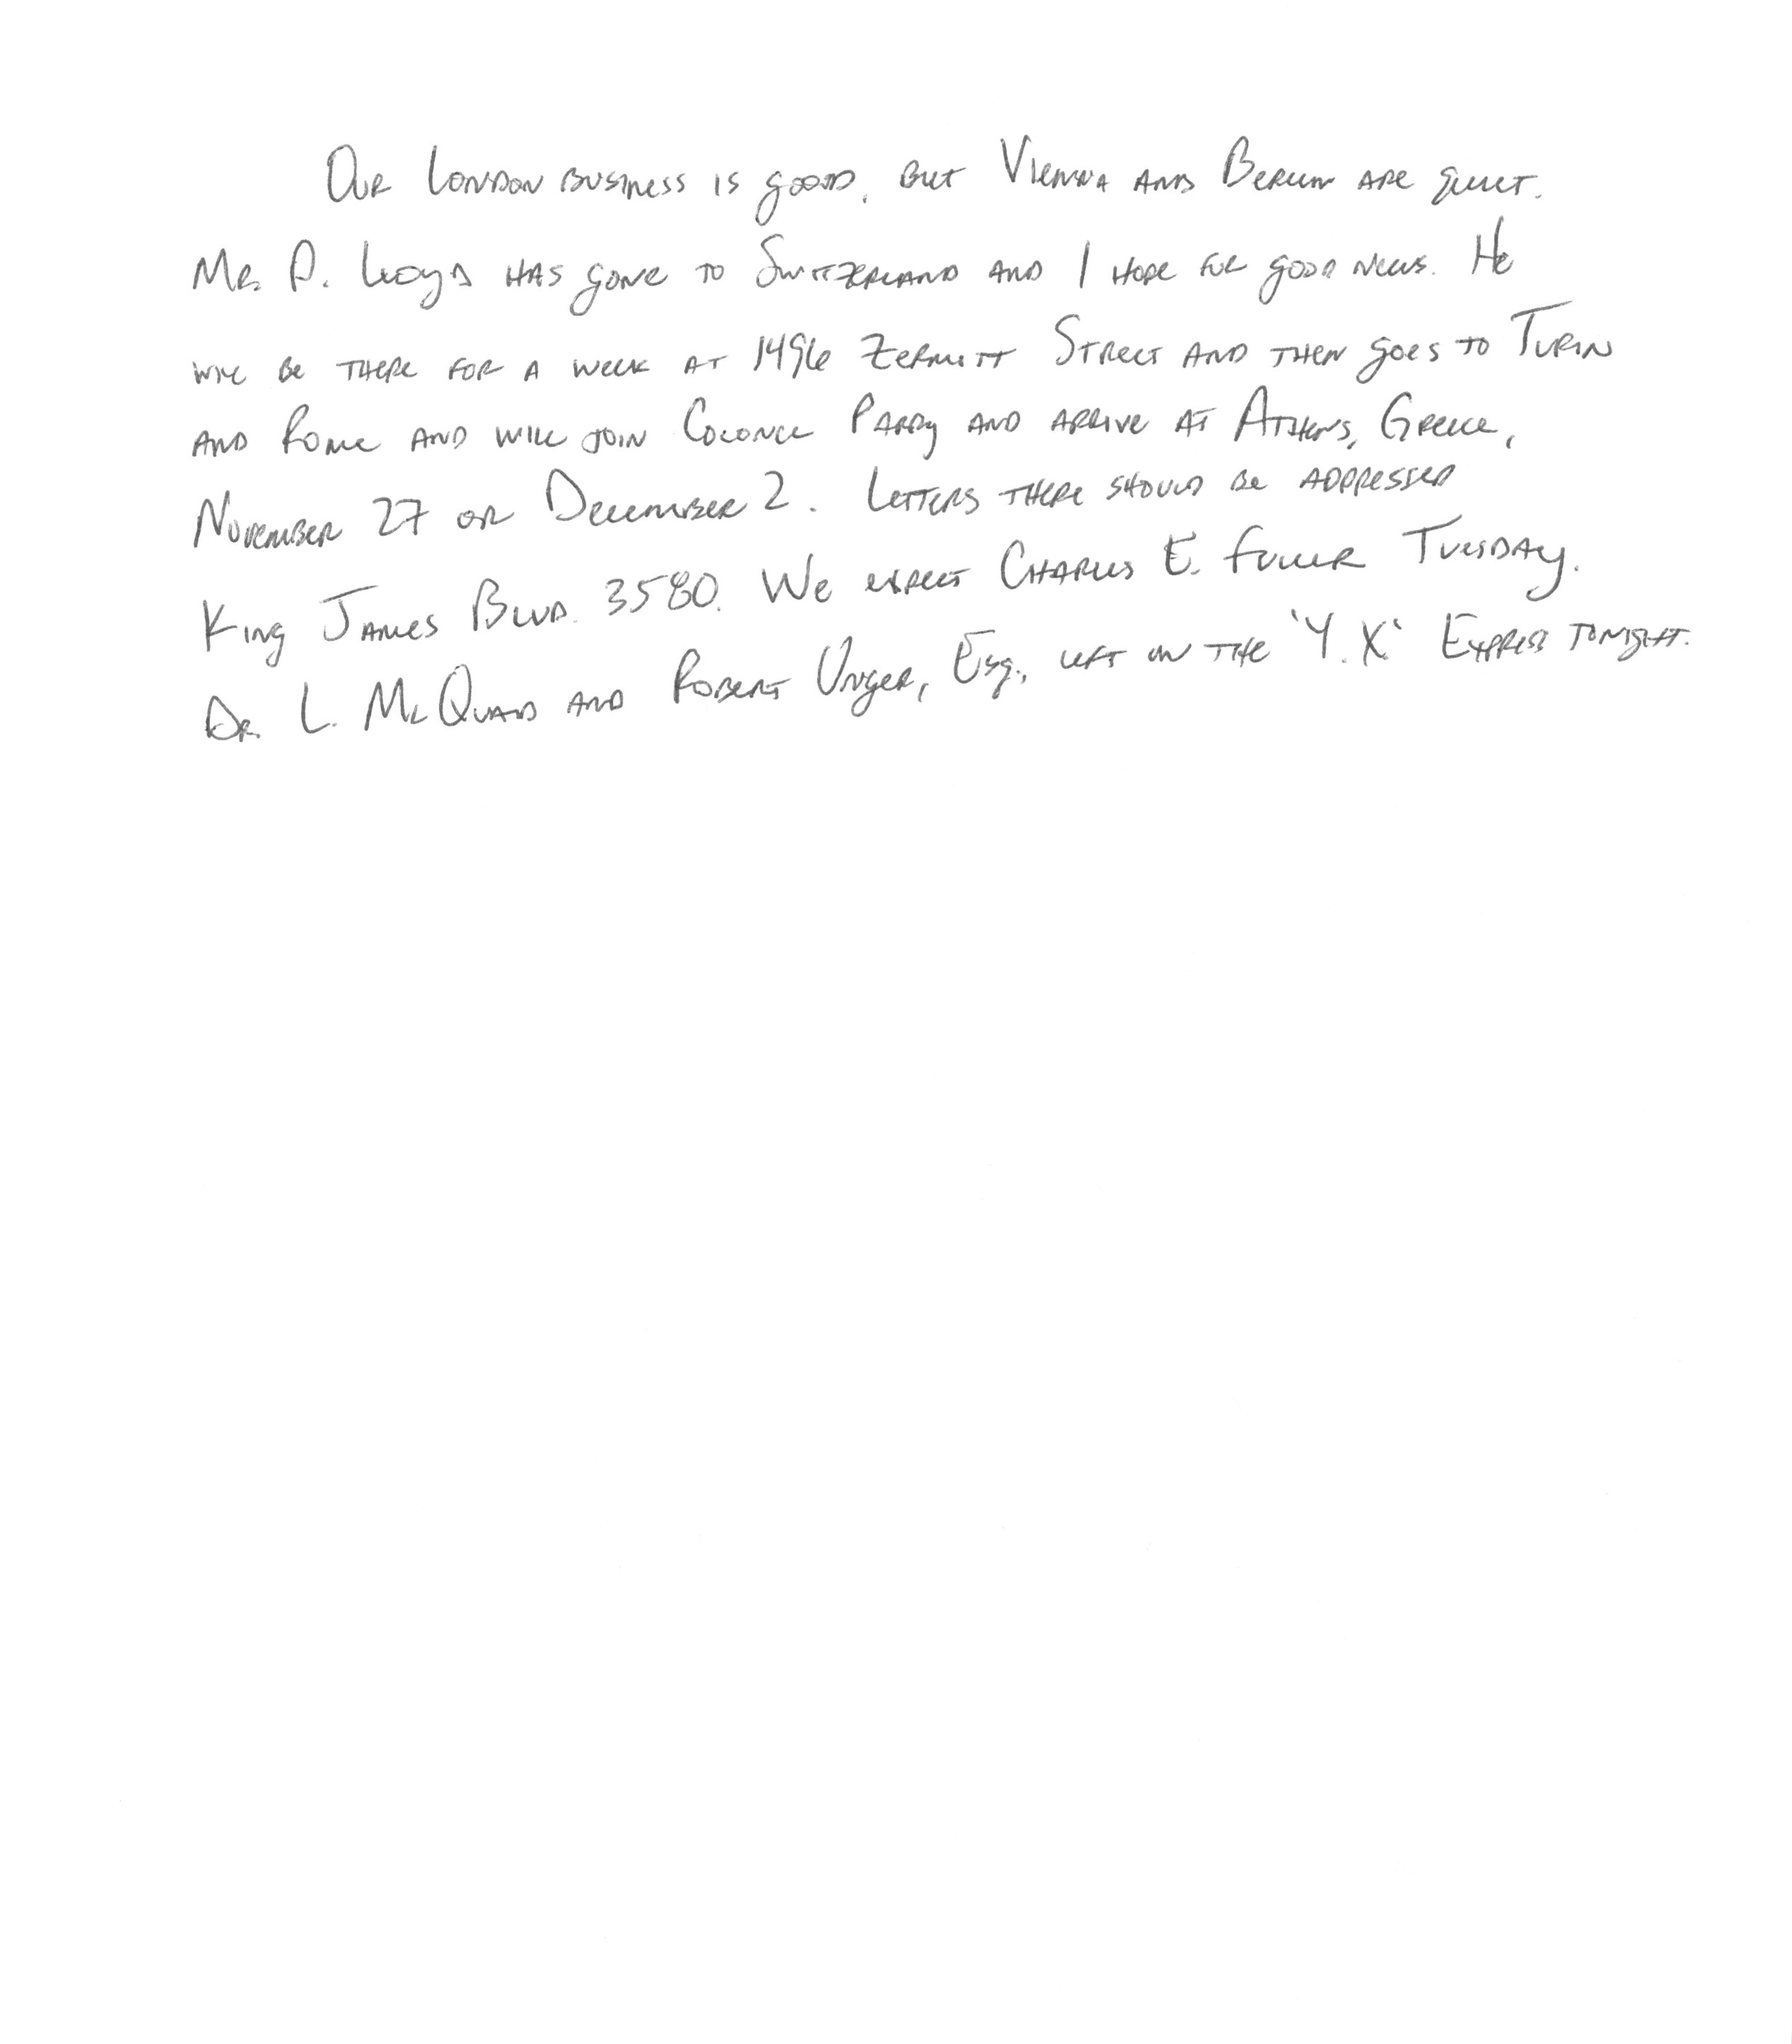 Our London business is good, but Vienna and Berlin are quiet.
Mr. D. Lloyd has gone to Switzerland and I hope for good news. He
will be there for a week at 1496 Zermitt Street and then goes to Turin
and Rome and will join Colonel Parry and arrive at Athens, Greece,
November 27 or December 2. Letters there should be addressed
King James Blvd. 3580. We expect Charles E. Fuller Tuesday.
Dr. L. McQuaid and Robert Unger, Esq., left on the 'Y.X.' Express tonight.